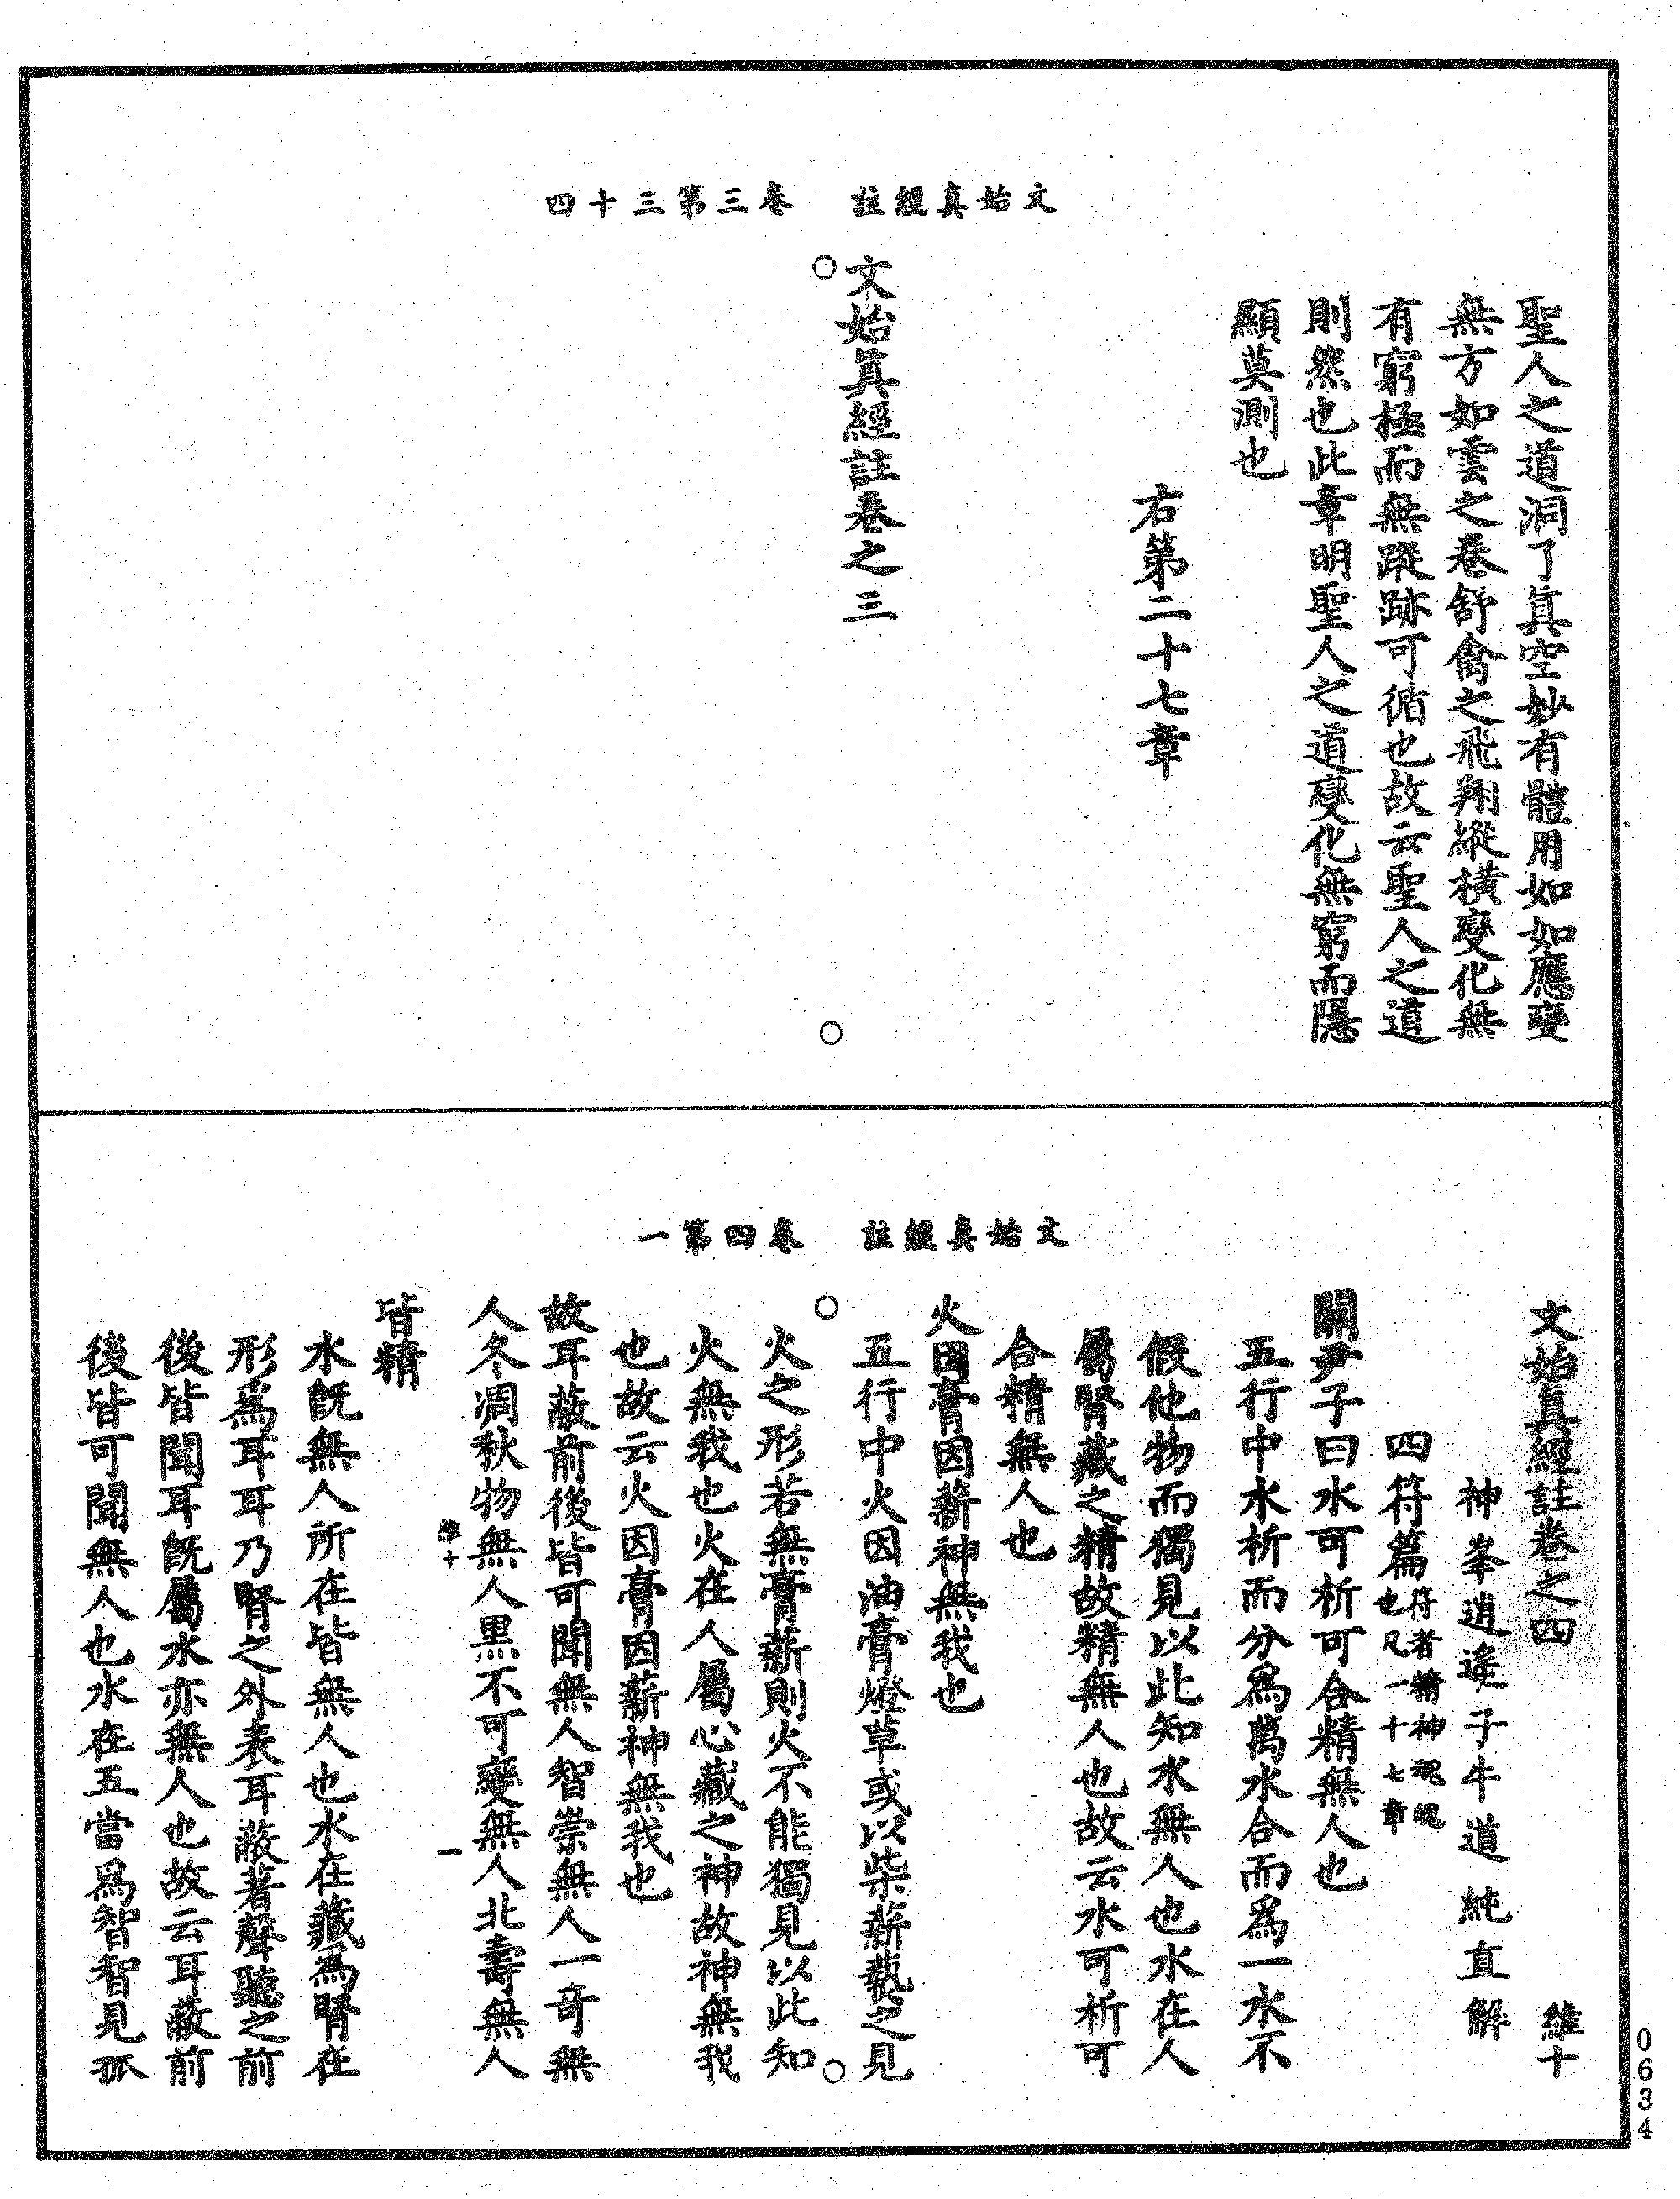 文始真經註　卷三第三十四
聖人之道洞了真空妙有體用如如應變
無方如雲之卷舒禽之飛翔縱橫變化無
有窮極而無蹤跡可循也故云聖人之道
則然也此章明聖人之道變化無窮而隱
顯莫測也
右第二十七章
文始真經註卷之三
文始真經註　卷四第一
文始真經註卷之四　維十
神峯逍遙子牛道純直解
四符篇符者精神魂魄也凡一十七章
關尹子曰水可析可合精無人也
五行中水析而分為萬水合而為一水不
假他物而獨見以此知水無人也水在人
屬腎藏之精故精無人也故云水可析可
合精無人也
火因膏因薪神無我也
五行中火因油膏燈草或以柴薪爇之見
火之形若無膏薪則火不能獨見以此知
火無我也火在人屬心藏之神故神無我
也故云火因膏因薪神無我也
故耳蔽前後皆可聞無人智崇無人一奇無
人冬凋秋物無人黑不可變無人北壽無人
維十　一
皆精
水既無人所在皆無人也水在藏為腎在
形為耳耳乃腎之外表耳蔽著聲聽之前
後皆聞耳既屬水亦無人也故云耳蔽前
後皆可聞無人也水在五當為智智見孤
0634